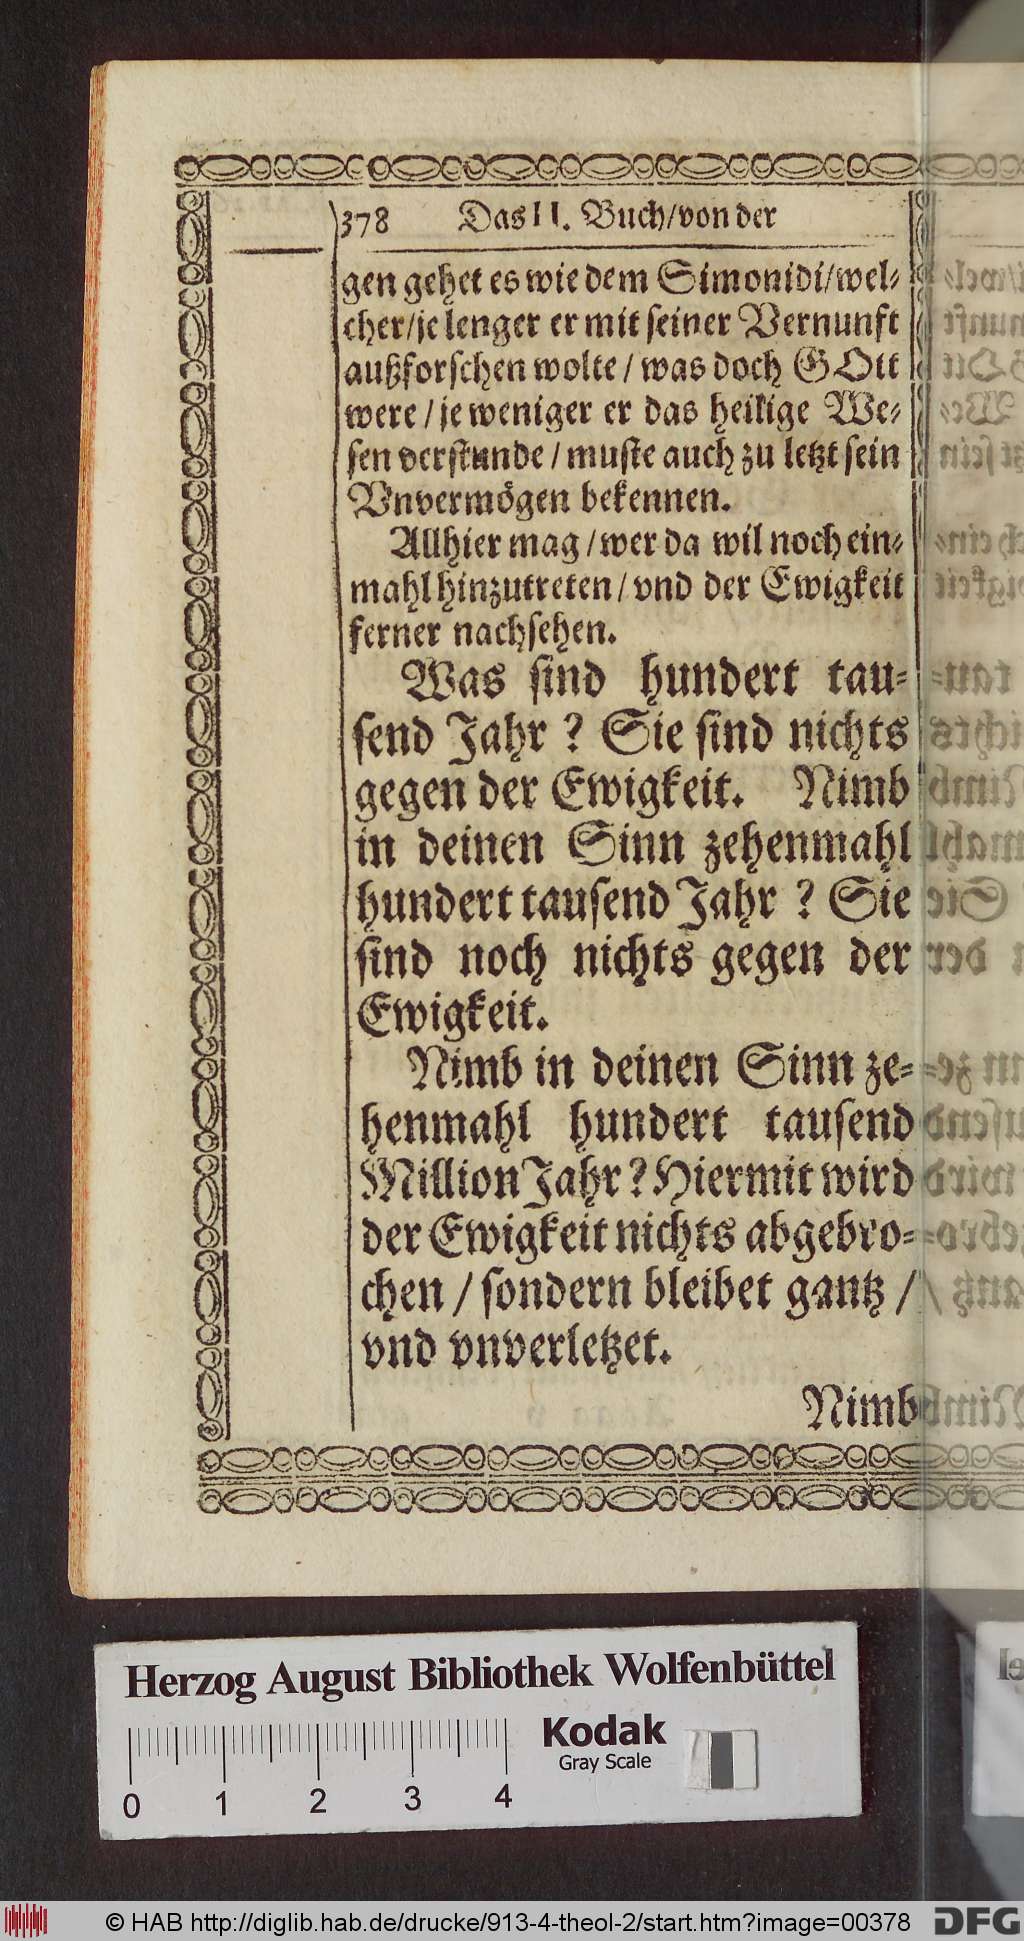 378 Das II. Buch/von der
gen gehet es wie dem Simonidi/wel-
cher/je lenger er mit seiner Vernunft
außforschen wolte / was doch GOtt
were / je weniger er das heilige We-
sen verstunde / muste auch zu letzt sein
Vnvermögen bekennen.
Allhier mag / wer da wil noch ein-
mahl hinzutreten / vnd der Ewigkeit
ferner nachsehen.
Was sind hundert tau-
send Jahr ? Sie sind nichts
gegen der Ewigkeit. Nimb
in deinen Sinn zehenmahl
hundert tausend Jahr ? Sie
sind noch nichts gegen der
Ewigkeit.
Nimb in deinen Sinn ze-
henmahl hundert tausend
Million Jahr ? Hiermit wird
der Ewigkeit nichts abgebro-
chen / sondern bleibet gantz /
vnd vnverletzet.
Nimb
Herzog August Bibliothek Wolfenbüttel
Kodak
Gray Scale
0 1 2 3 4
© HAB http://diglib.hab.de/drucke/913-4-theol-2/start.htm?image=00378
DFG